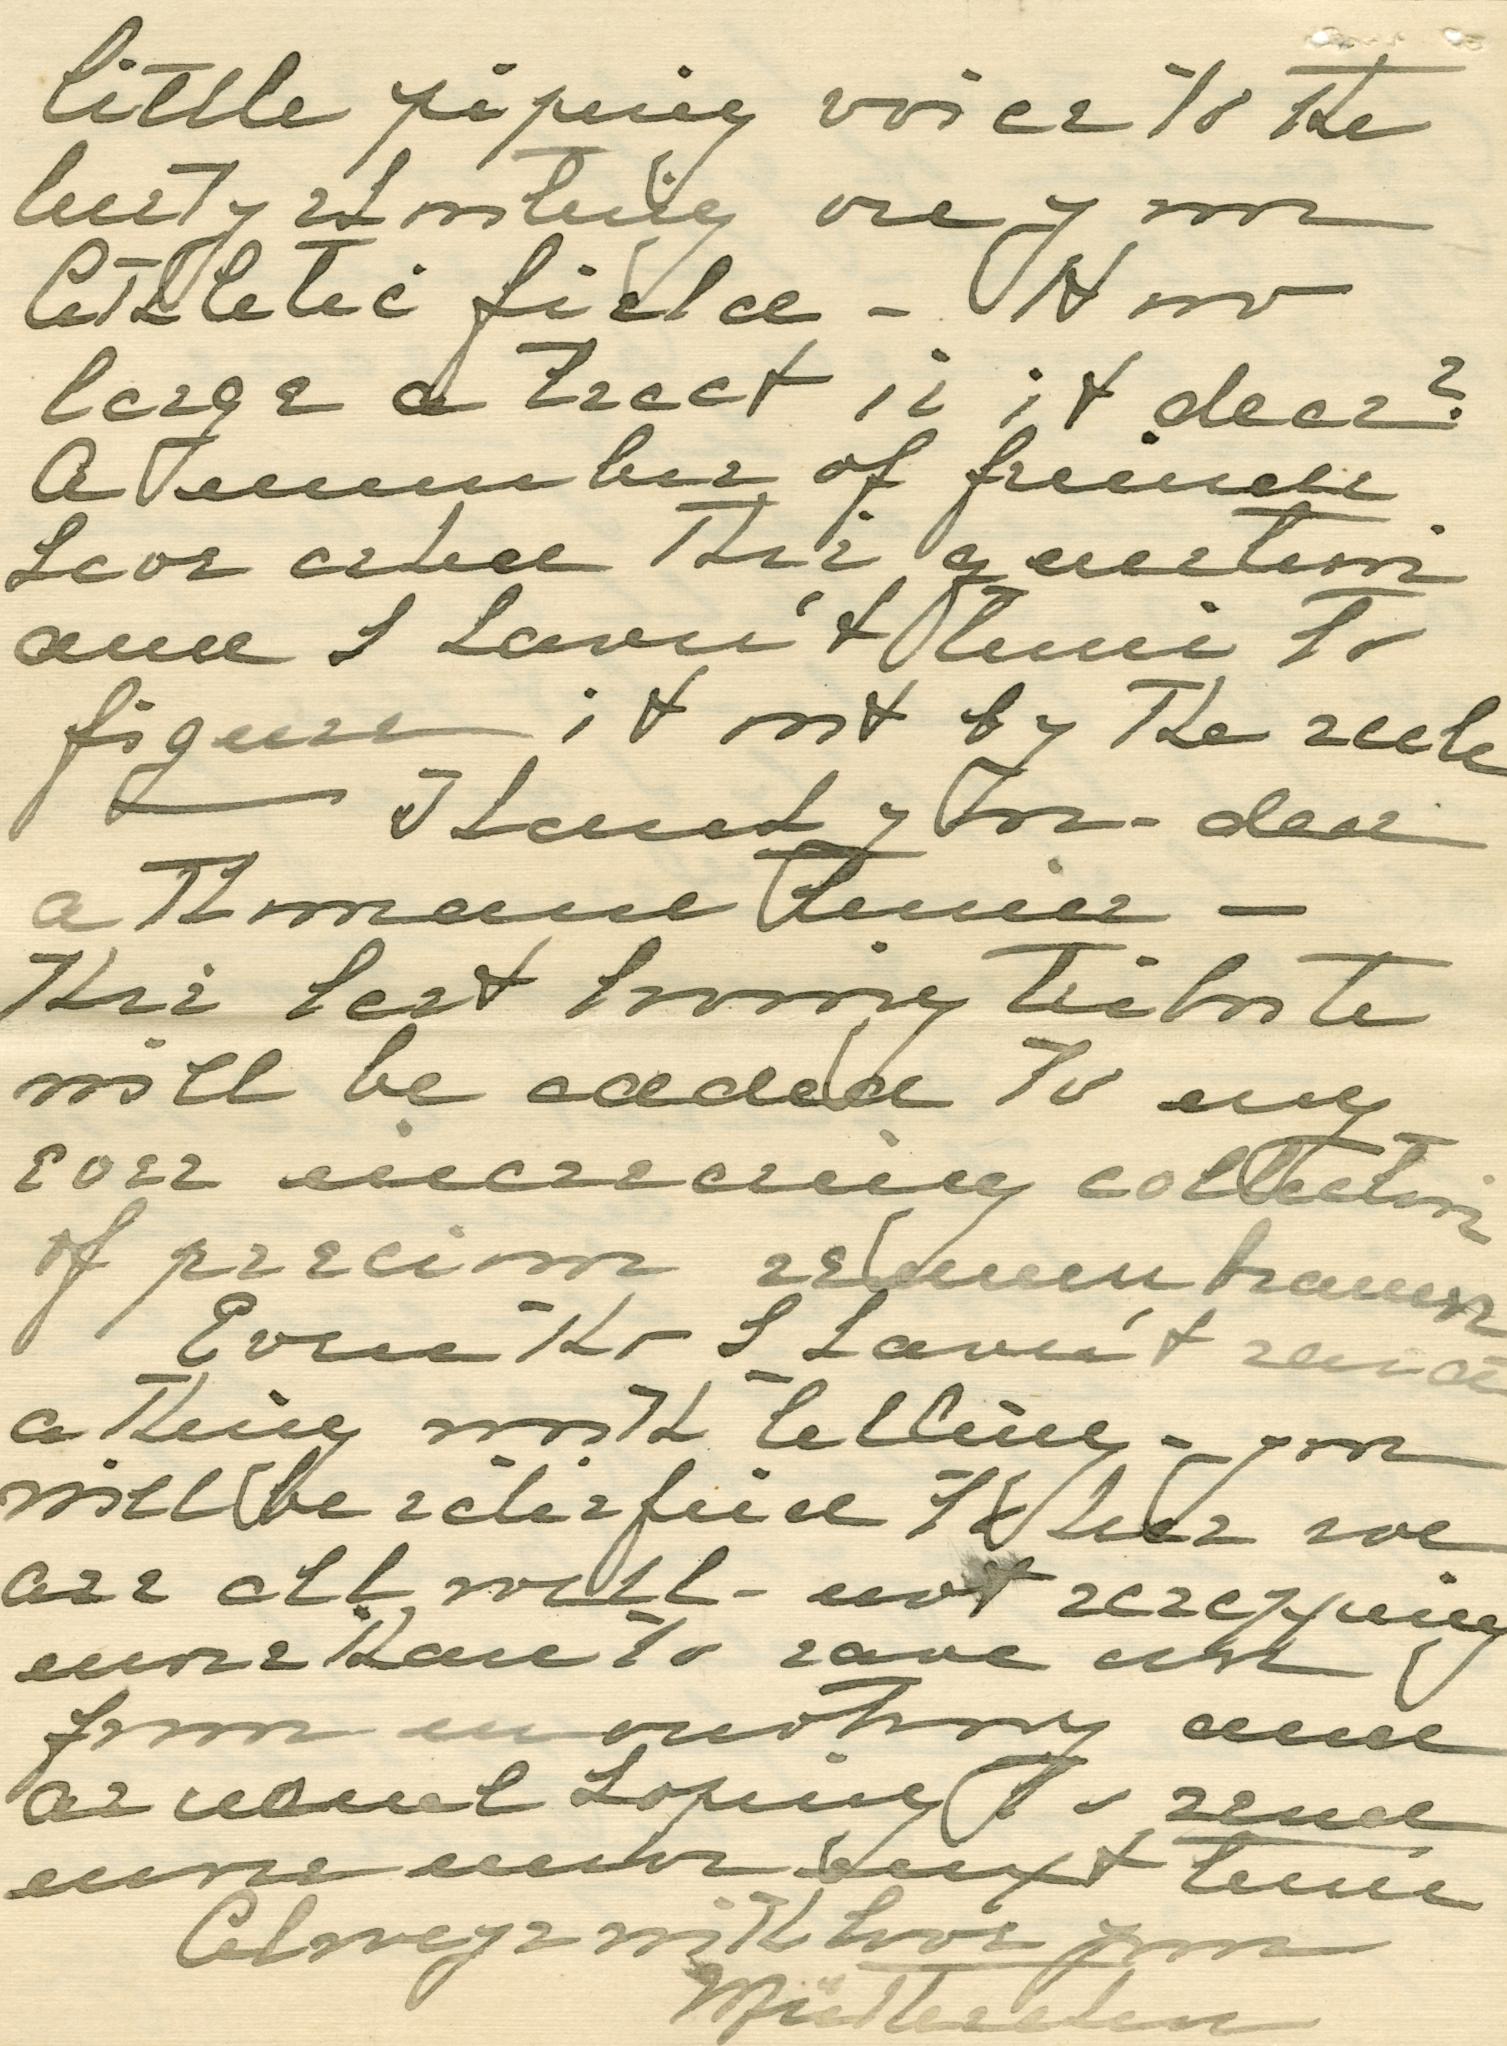 little piping voice to the
lusty shouting on your
Athletic field - How
large a tract is it dear?
A number of friends
have asked this question
and I haven't time to
figure it out by the scale
Thank you - dear
a thousand times -
This last loving tribute
will be added to my
ever increasing collection
of precious remembrances
Even tho I haven't said
a thing worth telling - you
will be satisfied that we
are all well - not scrapping
more than to save us
from monotony and
as usual hoping to send
more next time
Always with love your
Mütterchen